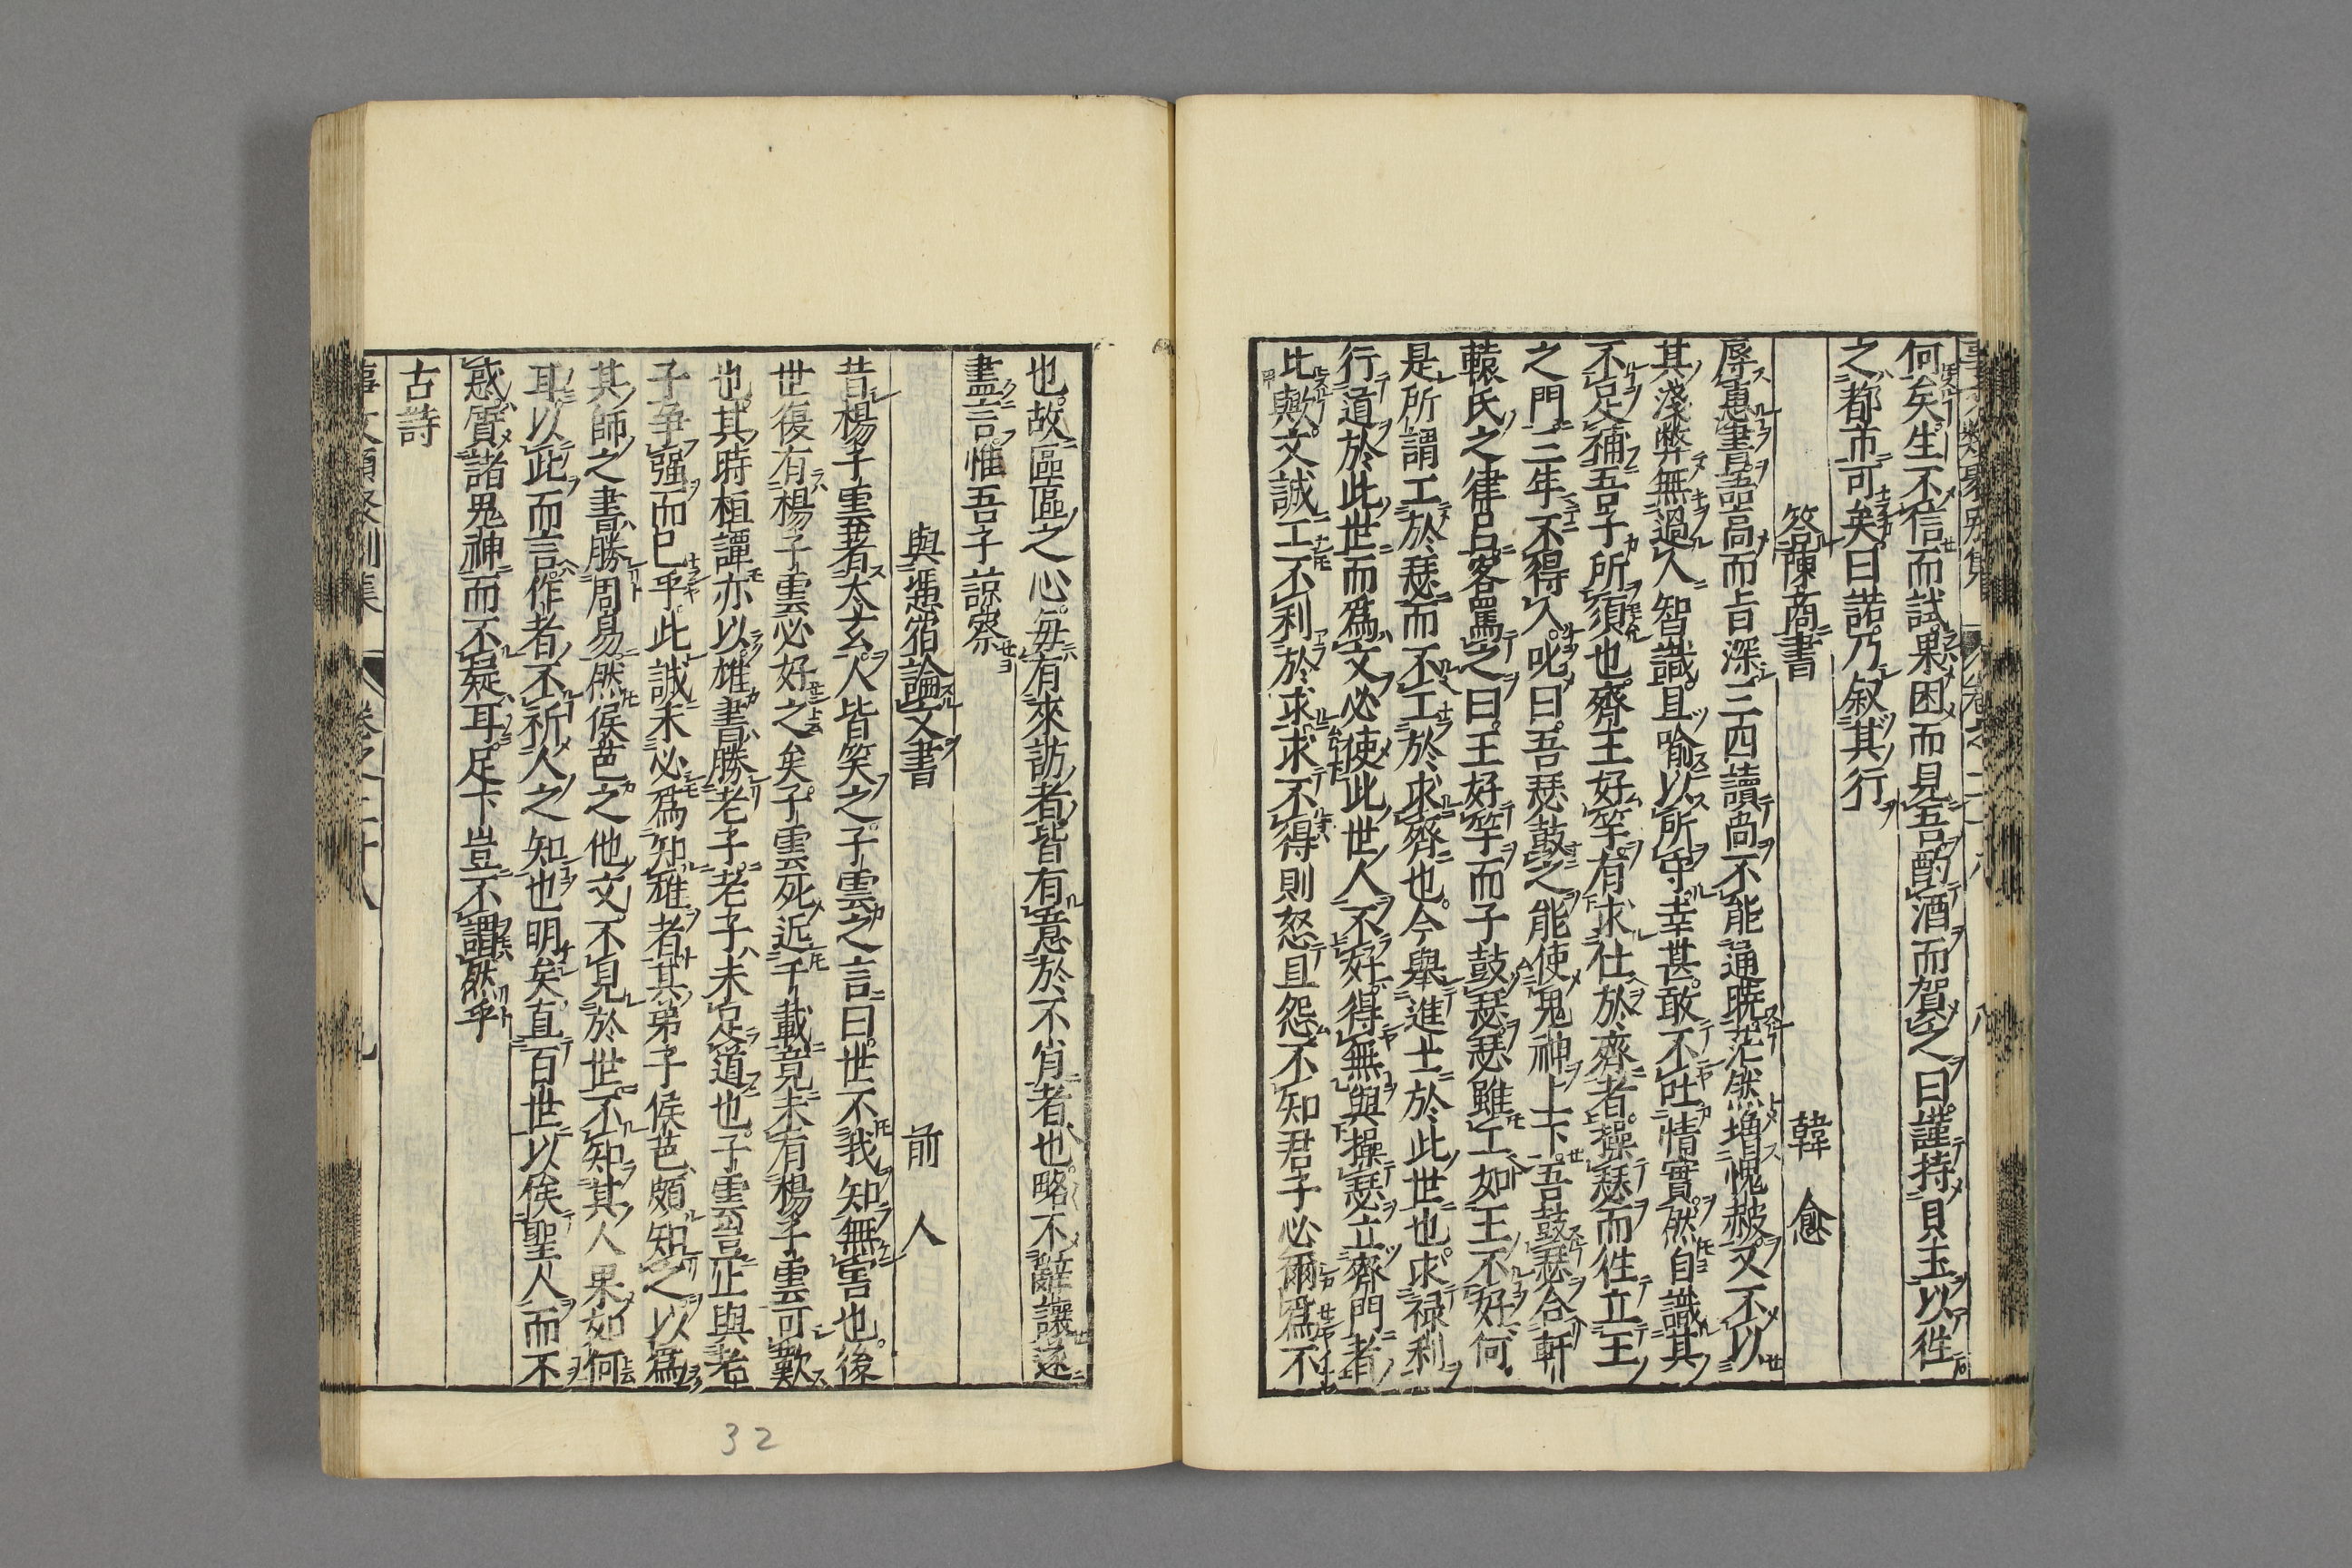 何矣生不信而試果困而見吾酌酒而賀之曰謹持貝玉以徃
之都市可矣曰諾乃叙其行
答陳商書 韓愈
辱惠書語高而旨深三四讀尚不能通暁茫然増愧赧又不以
其淺弊無過人智識且喻以所守幸甚敢不吐情實然自識其
不足補吾子所須也齊王好竽有求仕於齊者操瑟而徃立王
之門三年不得入叱曰吾瑟鼓之能使鬼神上下吾鼓瑟合軒
轅氏之律吕客罵之曰王好竽而子鼓瑟瑟雖工如王不好何
是所謂工於瑟而不工於求齊也今舉進士於此世也求禄利
行道於此世而爲文必使此世人不好得無與操瑟立齊門者
比歟文誠工不利於求求不得則怒且怨不知君子必爾爲不
也故區區之心毎有來訪者皆有意於不肖者也略不辭讓遂
盡言惟吾子諒察
與馮宿論文書 前人
昔楊子雲著太玄人皆笑之子雲之言曰世不我知無害也後
世復有楊子雲必好之矣子雲死近千載竟未有楊子雲可歎
也其時桓譚亦以雄書勝老子老子未足道也子雲豈止與老
子争强而已乎此誠未必爲知雄者其弟子侯芭頗知之以爲
其師之書勝周易然侯芭之他文不見於世不知其人果如何
耳以此而言作者不祈人之知也明矣直百世以俟聖人而不
惑質諸鬼神而不疑耳足下豈不謂然乎
古詩
事文類聚別集 卷之二十八 九
32